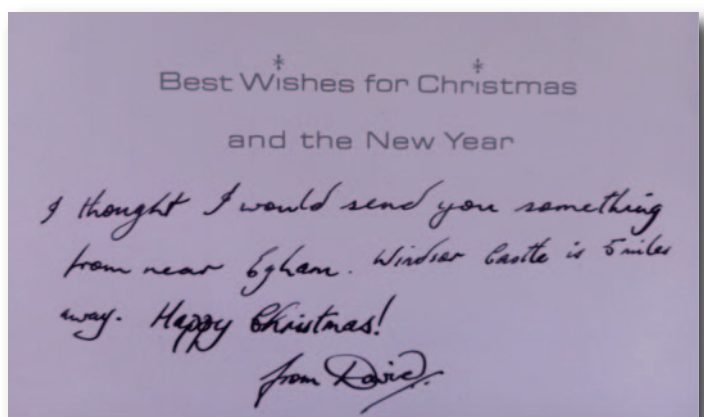 Best Wishes for Christmas
and the New Year
I thought I would send you something
from near Egham. Windsor Castle is 5 miles
away. Happy Christmas!
from David.